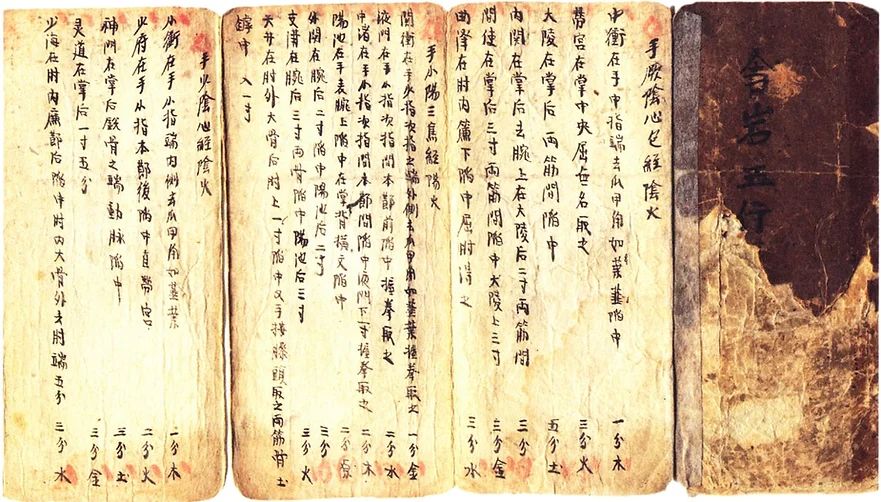 舍岩五行
手厥陰心包經陰火
中衝在手中指端去爪甲角如葉韮陷中 一分木
勞宮在掌中央屈無名取之 三分火
大陵在掌后兩筋間陷中 五分土
內関在掌后去腕上在大陵后二寸兩筋間 三分
間使在掌后三寸兩筋間陷中大陵上三寸 三分金
曲泽在肘內簾下陷中屈肘得之 三分水
手小陽三焦經陽火
関衝在手小指次指之端外側去爪甲角如韮葉握拳取之 一分金
液門在手小指次指間本節前陷中握拳取之 二分水
中渚在手小指次指間本節間陷中液門下一寸握拳取之 二分木
陽池在手表腕上陷中在掌背橫文陷中 二分原
外関在腕后二寸陷中陽池后二寸 三分
支溝在腕后三寸兩骨陷中陽池后三寸 三分火
天井在肘外大骨后肘上一寸陷中叉手按膝頭取之兩筋骨 土
罅中 入一寸
手少陰心經陰火
小衝在手小指端內側去爪甲角如韮葉 一分木
少府在手小指本節後陷中直勞宮 二分火
神門在掌后銳骨之端動脉陷中 三分土
灵道在掌后一寸五分 三分金
少海在肘內廉節后陷中肘內大骨外去肘端五分 三分水